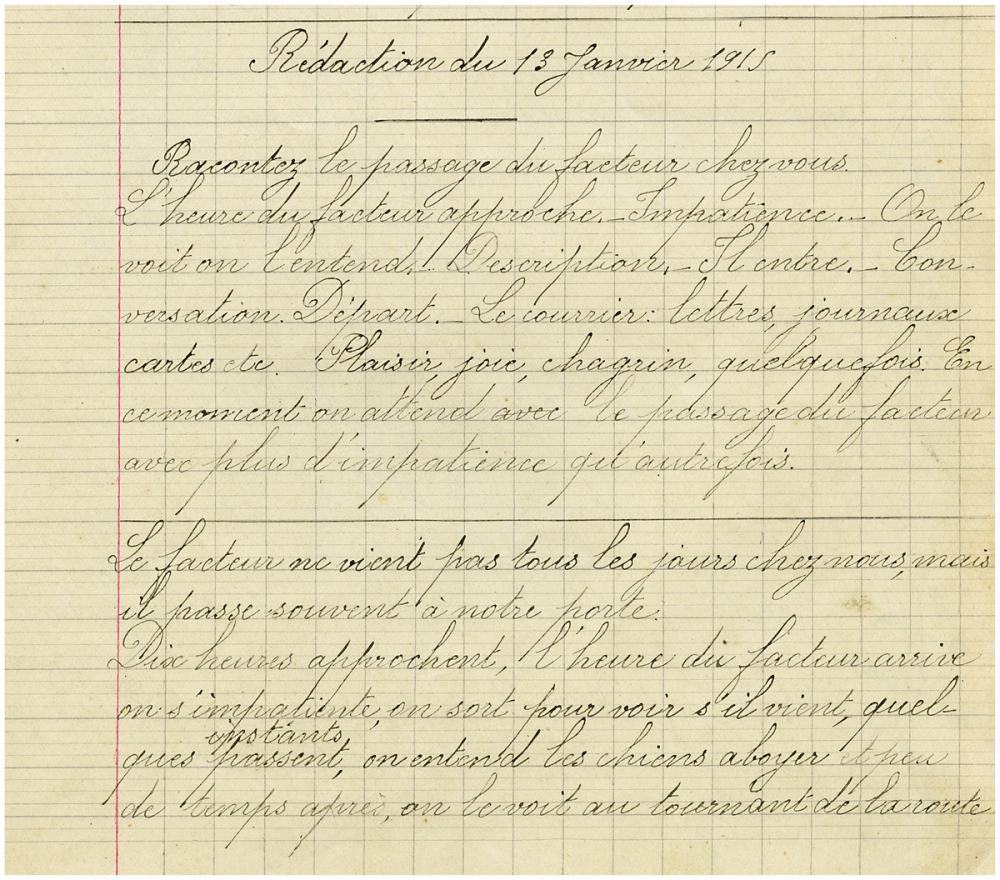 Rédaction du 13 Janvier 1915
Racontez le passage du facteur chez vous.
L'heure du facteur approche. _ Impatience. _ On le
voit on l'entend. _ Description. _ Il entre. _ Con-
versation. Départ. _ Le courrier : lettres, journaux
cartes etc. Plaisir, joie, chagrin, quelquefois. En
ce moment on attend avec le passage du facteur
avec plus d'impatience qu'autrefois.
Le facteur ne vient pas tous les jours chez nous, mais
il passe souvent à notre porte.
Dix heures approchent, l'heure du facteur arrive
on s'impatiente, on sort pour voir s'il vient, quel-
instants
ques passent, on entend les chiens aboyer et peu
de temps après, on le voit au tournant de la route